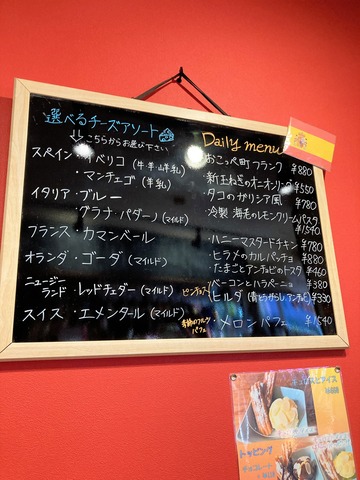 選べるチーズアソート
こちらからお選び下さい
スペイン・イベリコ(牛・羊・山羊乳)
・マンチェゴ(羊乳)
イタリア・ブルー
・グラナ・パダーノ(マイルド)
フランス・カマンベール
オランダ・ゴーダ(マイルド)
ニュージーランド・レッドチェダー(マイルド)
スイス・エメンタール(マイルド)
Daily menu
おこっぺ町フランク ¥880
・新玉ねぎのオニオンリング ¥550
・タコのガリシア風 ¥780
・冷製 海老のレモンクリームパスタ
¥1540
・ハニーマスタードチキン ¥780
・ヒラメのカルパッチョ ¥880
・たまごとアンチョビのトスタ ¥460
ピンチョス
・ベーコンとハラペーニョ ¥380
・ヒルダ(青とうがらし、アンチョビ) ¥330
季節のフルーツパフェ
・メロンパフェ ¥1540
トッピング
チョコレート